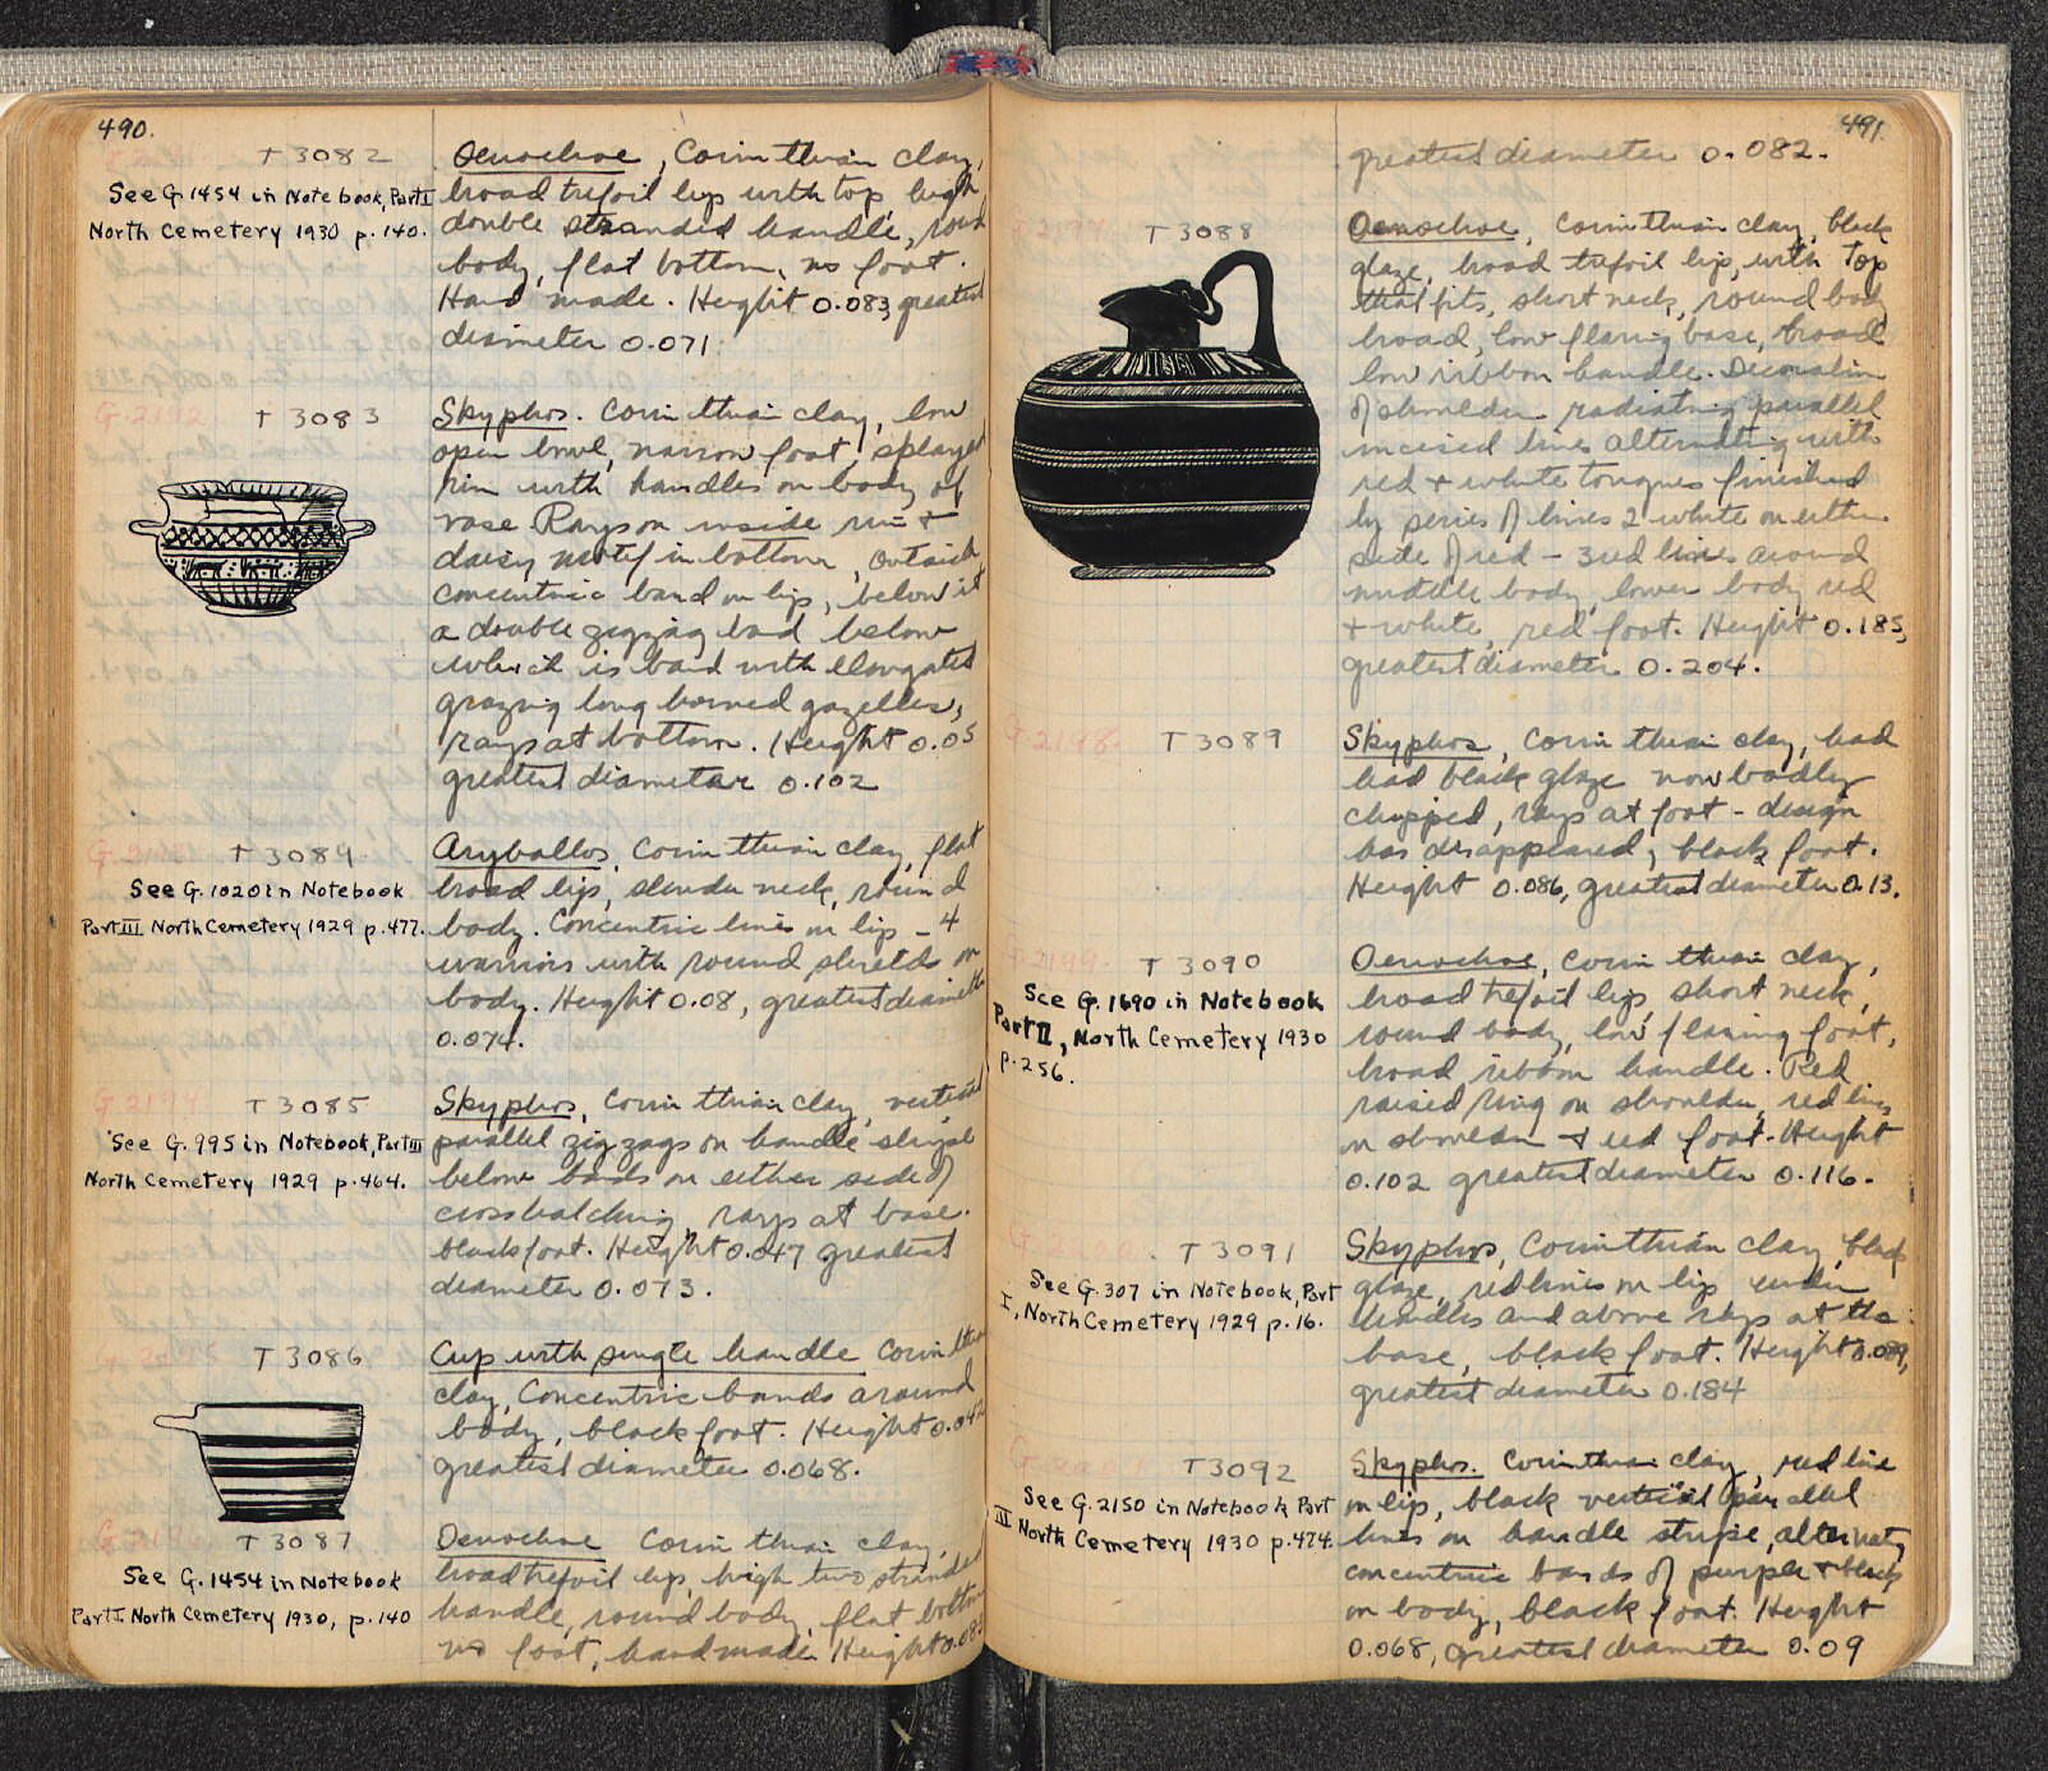 490.
T 3082
See G. 1454 in Notebook, Part I
North Cemetery 1930 p. 140.
Oenochoe, Corinthian clay,
broad trefoil lip with top, high
double stranded handle, round
body, flat bottom, no foot.
Hand made. Height 0.083, greatest
diameter 0.071.
G. 2192 T 3083
Skyphos. Corinthian clay, low
open bowl, narrow foot, splayed
rim with handles on body of
vase Rays on inside rim +
daisy motif in bottom, outside
concentric band on lip, below it
a double zigzag band below
which is band with elongated
grazing long horned gazelles,
rays at bottom. Height 0.05
greatest diameter 0.102
T 3084
See G. 1020 in Notebook
Part III North Cemetery 1929 p. 477.
Aryballos, Corinthian clay, flat
broad lip, slender neck, round
body. Concentric lines on lip - 4
warriors with round shields on
body. Height 0.08, greatest diameter
0.074.
G 2194 T 3085
See G. 995 in Notebook, Part III
North Cemetery 1929 p. 464.
Skyphos, Corinthian clay, vertical
parallel zig zags on handle stripe
below bands on either side of
crosshatching, rays at base.
black foot. Height 0.047 greatest
diameter 0.073.
G 2195 T 3086
Cup with single handle Corinthian
clay, Concentric bands around
body, black foot. Height 0.042
greatest diameter 0.068.
G 2196 T 3087
See G. 1454 in Notebook
Part I North Cemetery 1930, p. 140
Oenochoe Corinthian clay,
broad trefoil lip, high two stranded
handle, round body, flat bottom
no foot, hand made. Height 0.083
491.
greatest diameter 0.082.
G 2197 T 3088
Oenochoe, Corinthian clay, black
glaze, broad trefoil lip, with top
that fits, short neck, round body
broad, low flaring base, broad
low ribbon handle. Decoration
of shoulder radiating parallel
incised lines alternating with
red + white tongues finished
by series of lines 2 white on either
side of red - 3 red lines around
middle body, lower body red
+ white, red foot. Height 0.185,
greatest diameter 0.204.
G 2198. T 3089
Skyphos, Corinthian clay, had
had black glaze now badly
chipped, rays at foot - design
has disappeared, black foot.
Height 0.086, greatest diameter 0.13.
G 2199. T 3090
See G. 1690 in Notebook
Part II, North Cemetery 1930
p. 256.
Oenochoe, Corinthian clay,
broad trefoil lip, short neck,
round body, low flaring foot,
broad ribbon handle. Red
raised ring on shoulder, red lines
on shoulder + red foot. Height
0.102 greatest diameter 0.116.
T 3091
See G. 307 in Notebook, Part
I, North Cemetery 1929 p. 16.
Skyphos, Corinthian clay, black
glaze, red lines on lip under
handles and above rays at the
base, black foot. Height
greatest diameter 0.184
T 3092
See G. 2150 in Notebook Part
III North Cemetery 1930 p. 474.
Skyphos. Corinthian clay, red line
on lip, black vertical parallel
lines on handle stripe, alternating
concentric bands of purple + black
on body, black foot. Height
0.068, greatest diameter 0.09